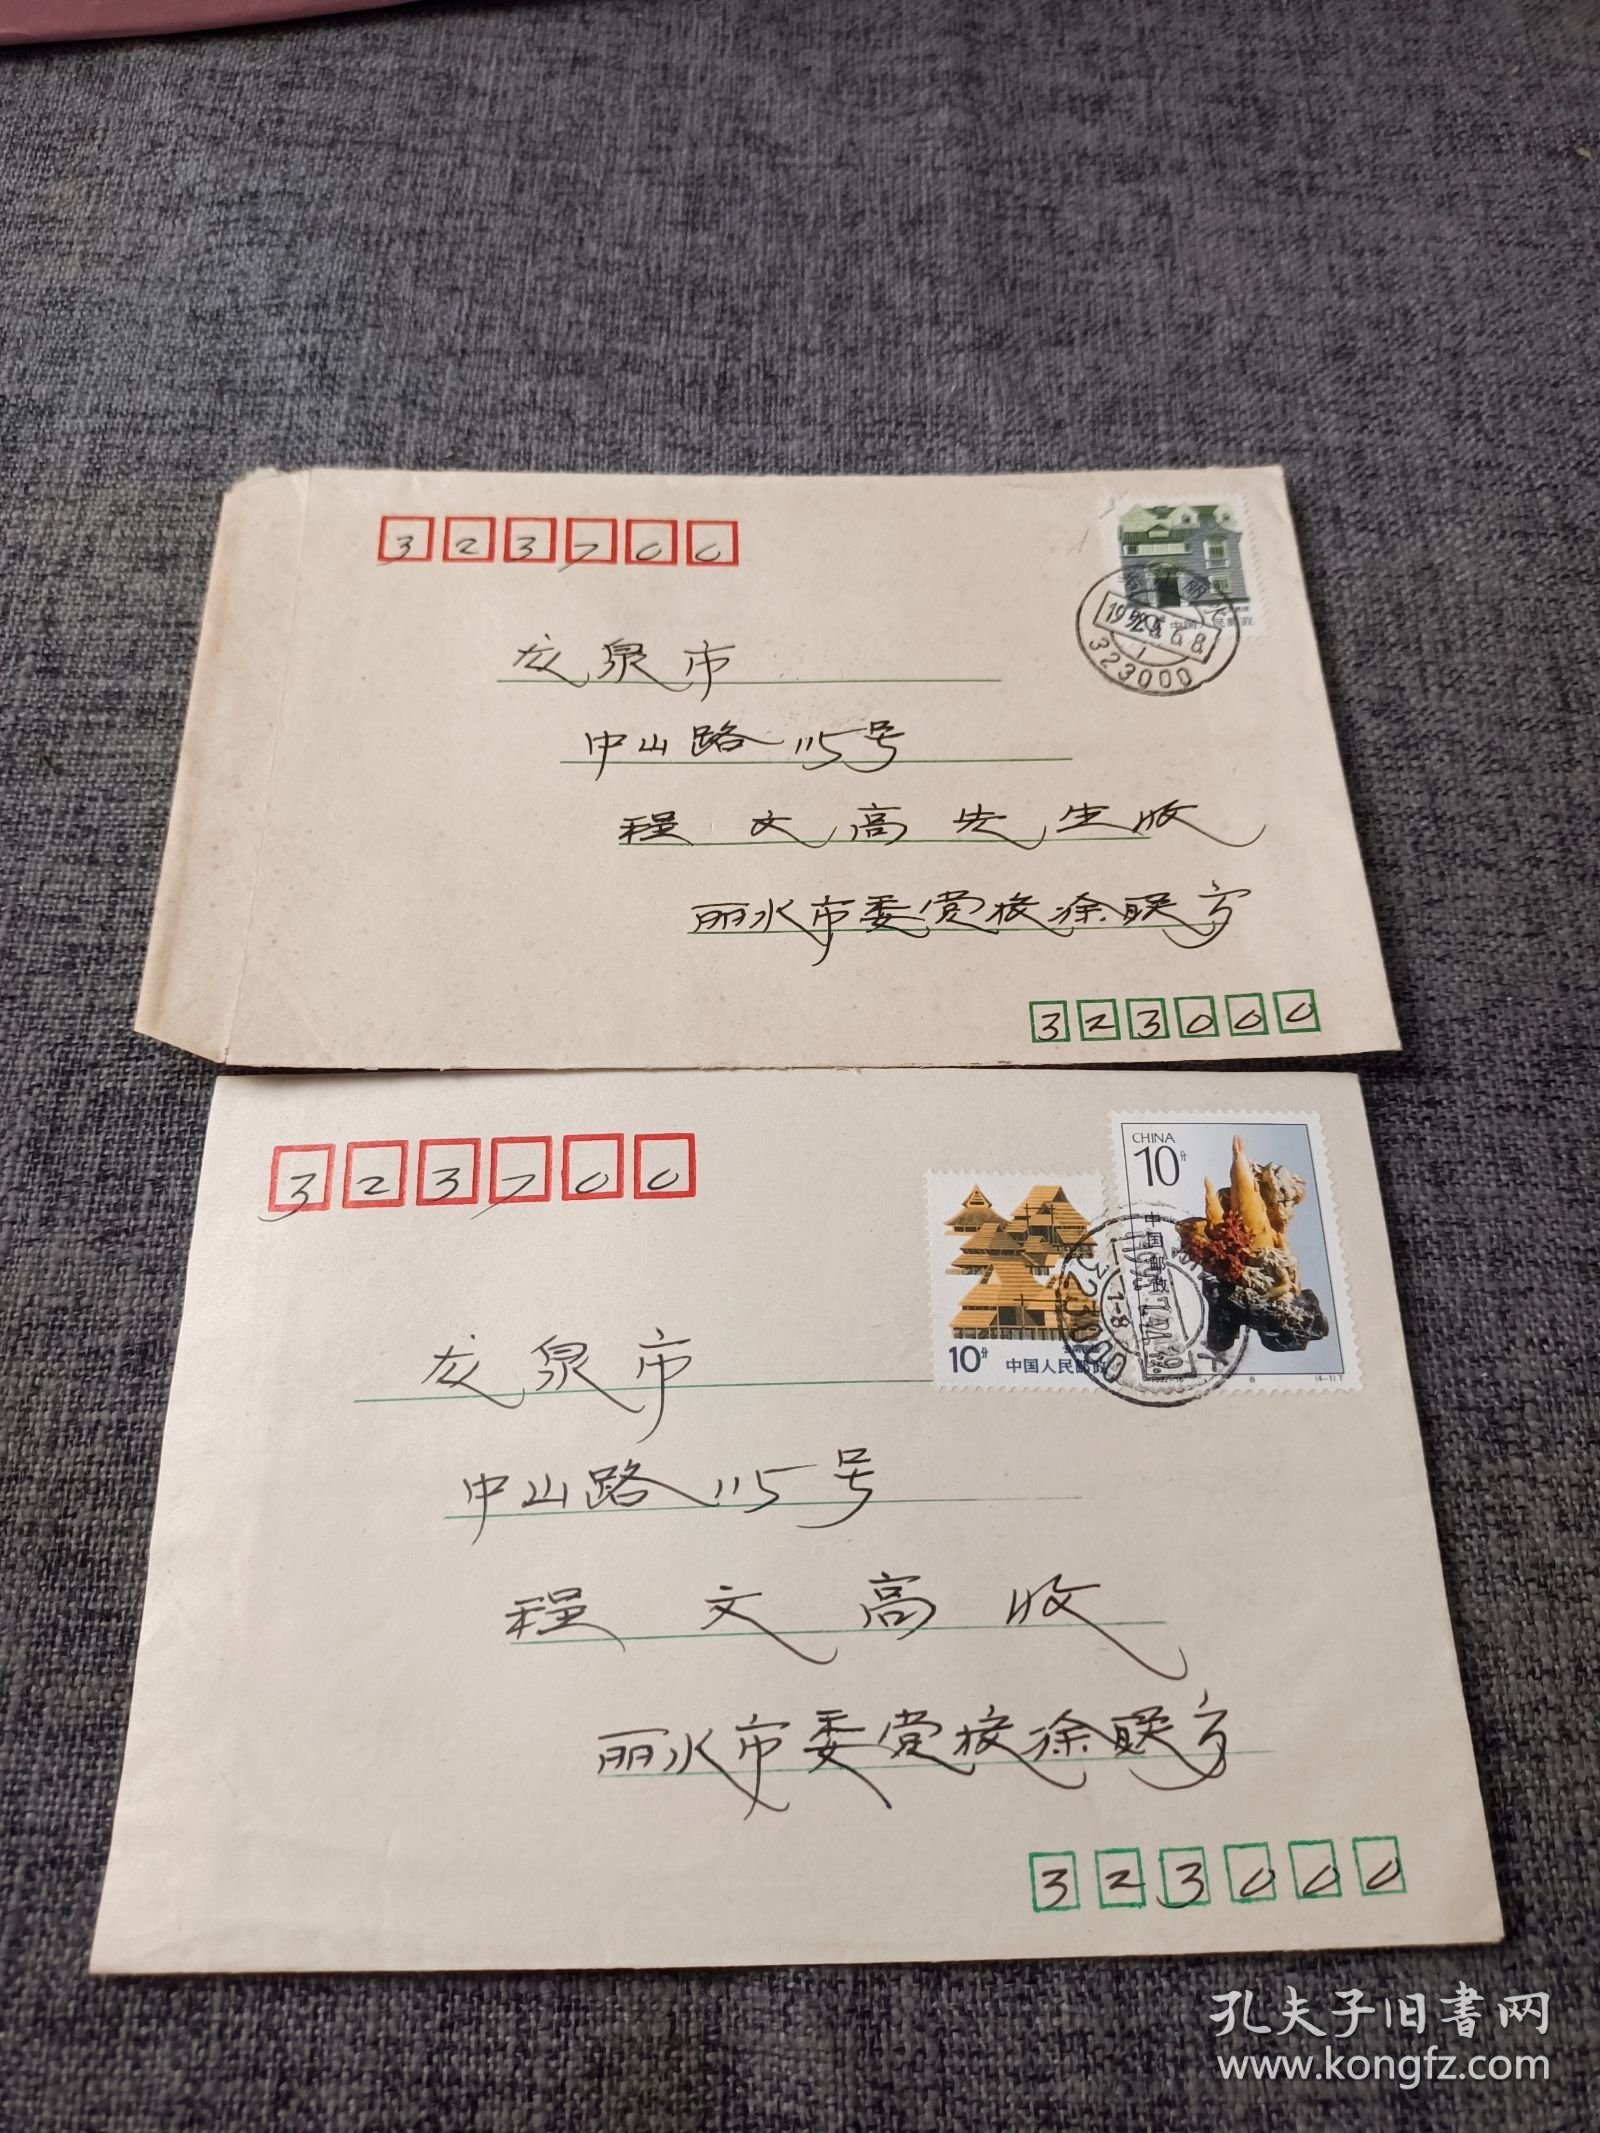 323700
龙泉市
中山路115号
程文高先生收
丽水市委党校徐联方
323000
中国人民邮政
323000
323700
CHINA
10分
中国邮政
10分
中国人民邮政
1992-16
6
(4-1)T
323000
龙泉市
中山路115号
程文高收
丽水市委党校徐联方
323000
孔夫子旧书网
www.kongfz.com